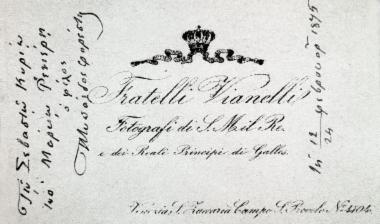 Τῇ Σεβαστῇ Κυρίᾳ
Μαρίᾳ
ὁ φίλος
Fratelli Vianelli
Fotografi di S. M. il Re.
e dei Reali Principi di Galles.
Venezia S. Zaccaria Campo S. Provolo No. 4704
12 φεβρουαρ 1875
24